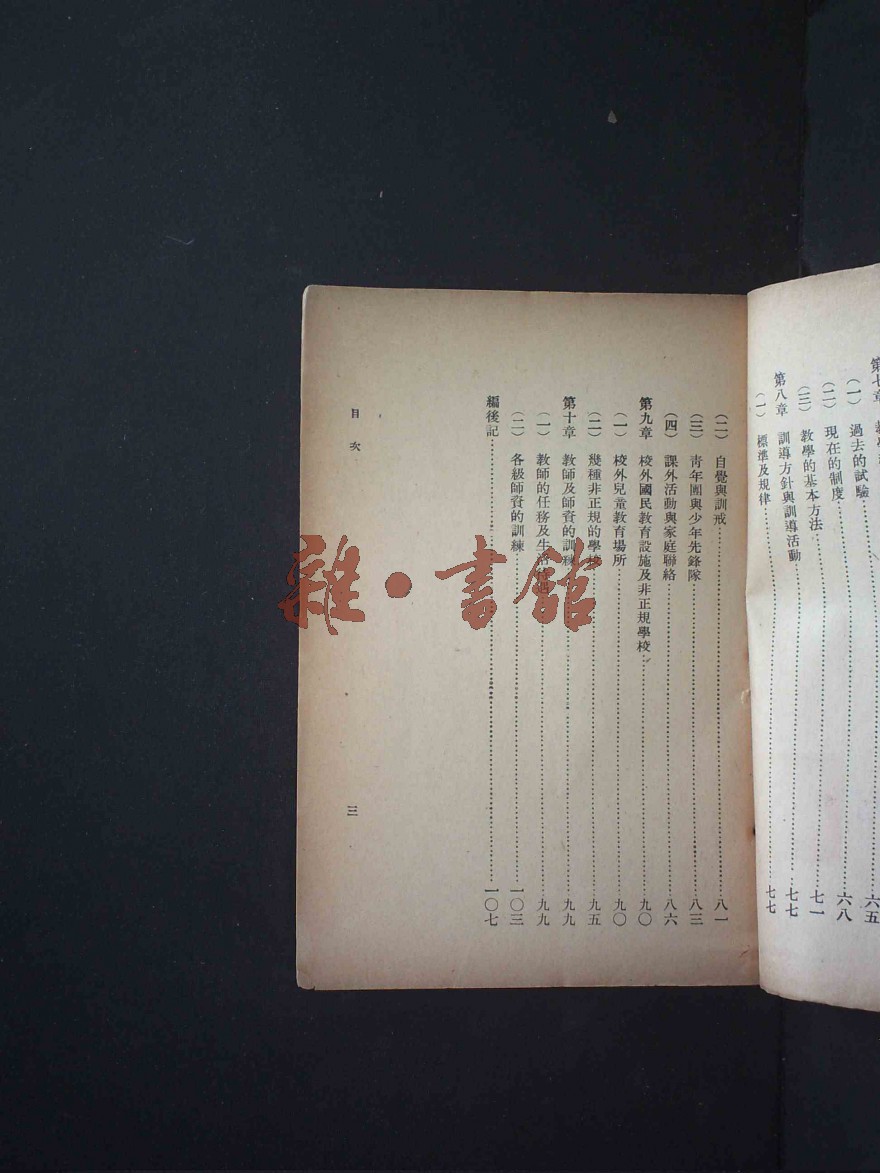 第七章
(一) 過去的試驗……六五
(二) 現在的制度……六八
(三) 教學的基本方法……七一
第八章 訓導方針與訓導活動……七七
(一) 標準及規律……七七
(二) 自覺與訓戒……八一
(三) 靑年團與少年先鋒隊……八三
(四) 課外活動與家庭聯絡……八六
第九章 校外國民教育設施及非正規學校……九〇
(一) 校外兒童教育場所……九〇
(二) 幾種非正規的學校……九五
第十章 教師及師資的訓練……九九
(一) 教師的任務及生活……九九
(二) 各級師資的訓練……一〇三
編後記……一〇七
目次
三
雜·書館